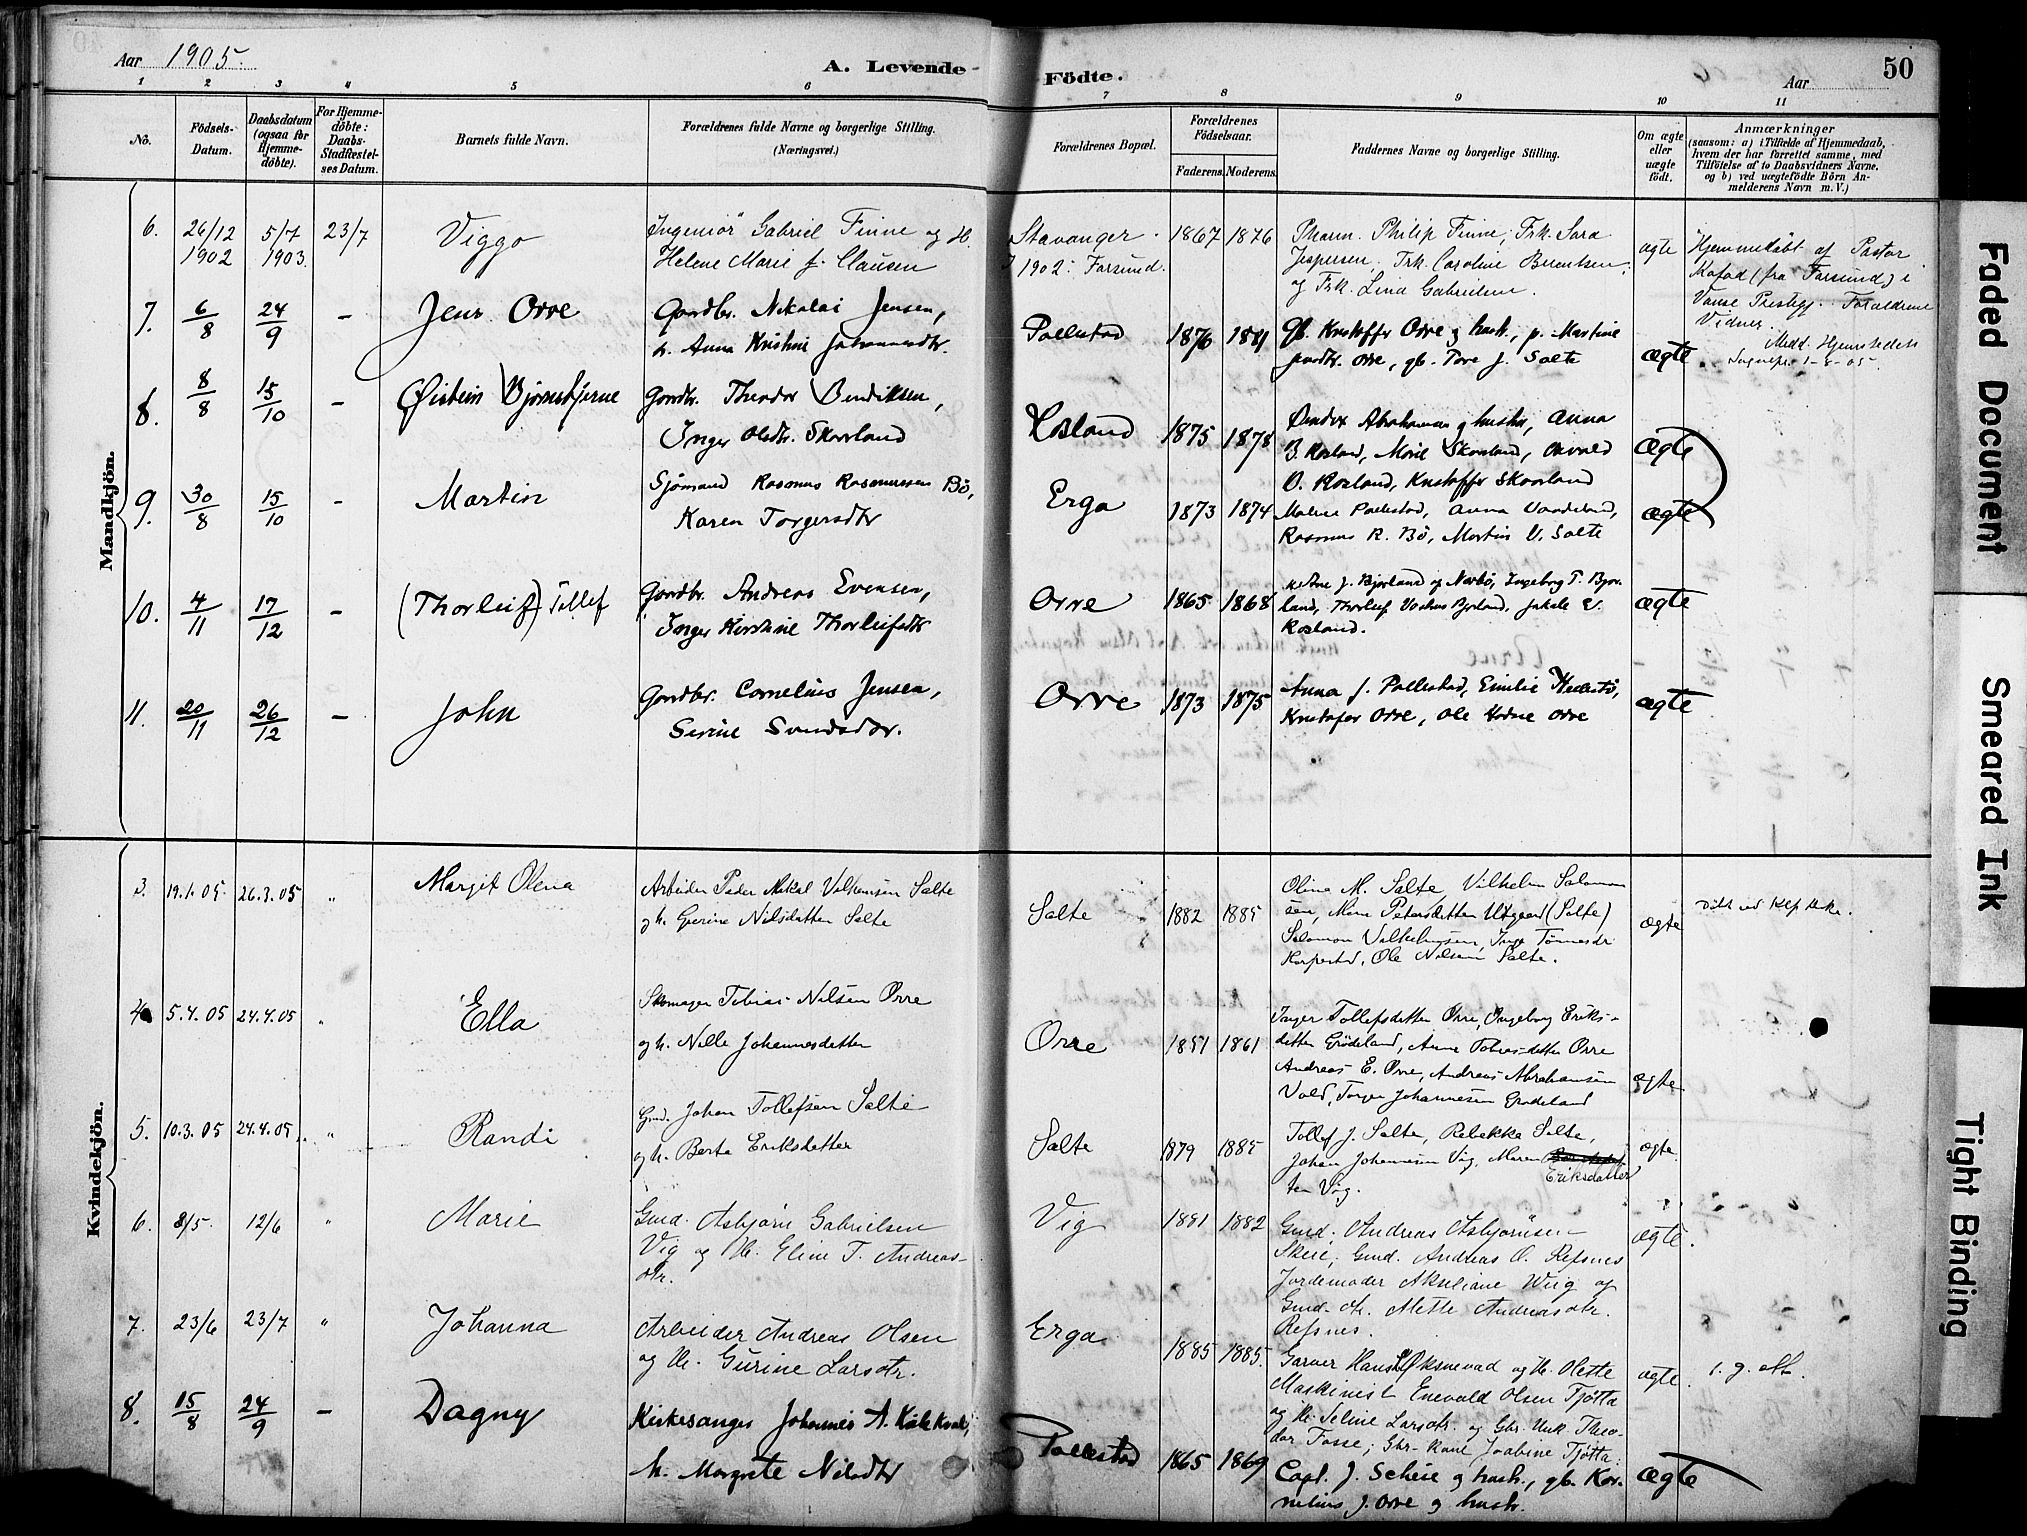 Aar 1905.
A. Levende Födte.
Aar
50
1 2 3 4 5 6 7 8 9 10 11
No.
Födsels-
Datum.
Daabsdatum
(ogsaa for
Hjemme-
döbte).
For Hjemme-
döbte:
Daabs-
Stadfæstel-
ses Datum.
Barnets fulde Navn.
Forældrenes fulde Navne og borgerlige Stilling.
(Næringsvei.)
Forældrenes Bopæl.
Forældrenes
Födselsaar.
Faderens. Moderens.
Faddernes Navne og borgerlige Stilling.
Om ægte
eller
uægte
födt.
Anmærkninger
(saasom: a) i Tilfælde af Hjemmedaab,
hvem der har forrettet samme, med
Tilföielse af to Daabsvidners Navne,
og b) ved uægtefödte Börn An-
melderens Navn m. V.)
Mandkjön.
6. 26/12 1902 5/7 1903. 23/7 Viggo
Ingeniör Gabriel Finne og H.
Helene Marie f. Clausen
Stavanger.
I 1902: Farsund.
1867 1876
Pharm. Philip Finne, Frk. Sara
Jespersen, Frk. Caroline Berentsen,
og Frk. Lina Gabrielsen.
ægte
Hjemmedöbt af Pastor
(fra Farsund) i
Vanse Prestegj. Forældrene
Vidner.
Medd. Hjemstedets
Sognepr. 1-8-05.
7. 6/8 24/9 – Jens Orre
Gardbr. Nikolai Jensen,
h. Anna Kristine Johannesdtr.
Pollestad 1876 1881
gb. Kristoffer Orre og hustr., p. Martine
Orre, gb. Tore J. Salte
ægte
8. 8/8 15/10 – Øistein Bjørnstjerne
Gardbr. Theodor Bendiksen,
Inger Olsdtr. Skaarland
Rosland 1875 1878
Abrahamsen og hustru, Anna
B. Rosland, Skaarland, Osvald
O. Rosland, Kristoffer Skaarland
ægte
9. 30/8 15/10 – Martin
Sjømand Rasmus Rasmussen Bö,
Karen Torgersdtr
Erga 1873 1874
Malene Pollestad, Anna Vaadeland,
Rasmus R. Bö, Martin V. Salte
ægte
10. 4/11 17/12 – (Thorleif) Tollef
Gardbr. Andreas Evensen,
Inger Kirstine Thorleifsdtr
Orre 1865 1868
J. Bjorland og Nærbö, Ingeborg T. Bjor-
land, Thorleif Bjorland, Jakob E.
Rosland.
ægte
11. 20/11 26/12 – John
Gardbr. Cornelius Jensen,
Serine Svendsdtr.
Orre 1873 1875
Anna J. Pollestad, Emilie
Kristofer Orre, Ole Hodne Orre
ægte
Kvindekjön.
3. 19.1.05. 26.3.05 " Margit Olena
Arbeider Peder Mikal Vilhemsen Salte
og h. Gurine Nilsdatter Salte
Salte 1882 1885
Olina M. Salte, Vilhelm Salomon
sen, Petersdatter Utgaard (Salte)
Salomon Vilhelmsen, Inga Tönnesdtr
Ole Nilsen Salte.
ægte
Döbt ved Klep Kirke.
4 5.4.05 24.4.05 " Ella
Skomager Tobias Nilsen Orre
og h. Nille Johannesdatter
Orre 1851 1861
Inger Tollefsdatter Orre, Ingeborg Eriks-
datter Grödeland, Anne Tobiasdatter Orre
Andreas E. Orre, Andreas Abrahamsen
Vold, Torger Johannesen Grödeland
ægte
5. 10.3.05 24.4.05 " Randi
Gmd. Johan Tollefsen Salte
og h. Berta Eriksdatter
Salte 1879 1885
Tollef J. Salte, Rebekka Salte,
Johan Johannesen Vig, Maren
Eriksdatter
ten Vig.
ægte.
6. 8/5. 12/6 " Marie
Gmd. Asbjørn Gabrielsen
Vig og H. Eline T. Andreas-
dtr.
Vig 1851 1882
Gmd. Andreas Asbjørnsen
Skeie, Gmd. Andreas O. Refsnes
Jordemoder Akseliane Wiig og
Gmd. H. Mette Andreasdtr.
Refsnes.
ægte.
7. 23/6 23/7 " Johanna
Arbeider Andreas Olsen
og H. Gurine Larsdtr.
Erga 1885 1885.
Garver Hans Øksnevad og H. Olette
Maskinist Enevald Olsen Tjötta
og H. Seline Larsdtr. og Gbr. Unk. Theo-
dor Fosse; Gbr-kone Joabine Tjötta.
ægte
1. g. eft.
8. 15/8 24/9 – Dagny
Kirkesanger Johannes A.
h. Margrete Nilsdtr
Pollestad 1865 1869
Capt. J. Scheie og hustr., gb. Kor-
nelius J. Orre og hustr.
ægte
Faded Document
Smeared Ink
Tight Binding